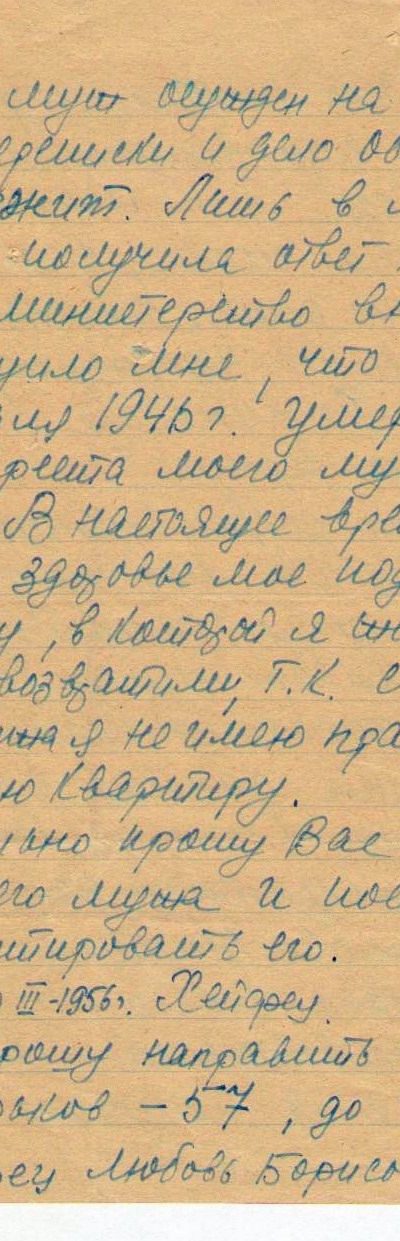 муж осужден на
реписки и дело об
ежит. Лишь в
получила ответ
министерство вн
щило мне, что
ля 1946 г. умер
реста моего му
В настоящее вре
здоровье мое под
у, в которой я жи
возвратили, т.к. с
мужа я не имею пра
ю квартиру.
льно прошу Вас
его мужа и пос
итировать его.
III-1956г. Хейфец
рошу направить
рьков - 57, до
ец Любовь Борисо